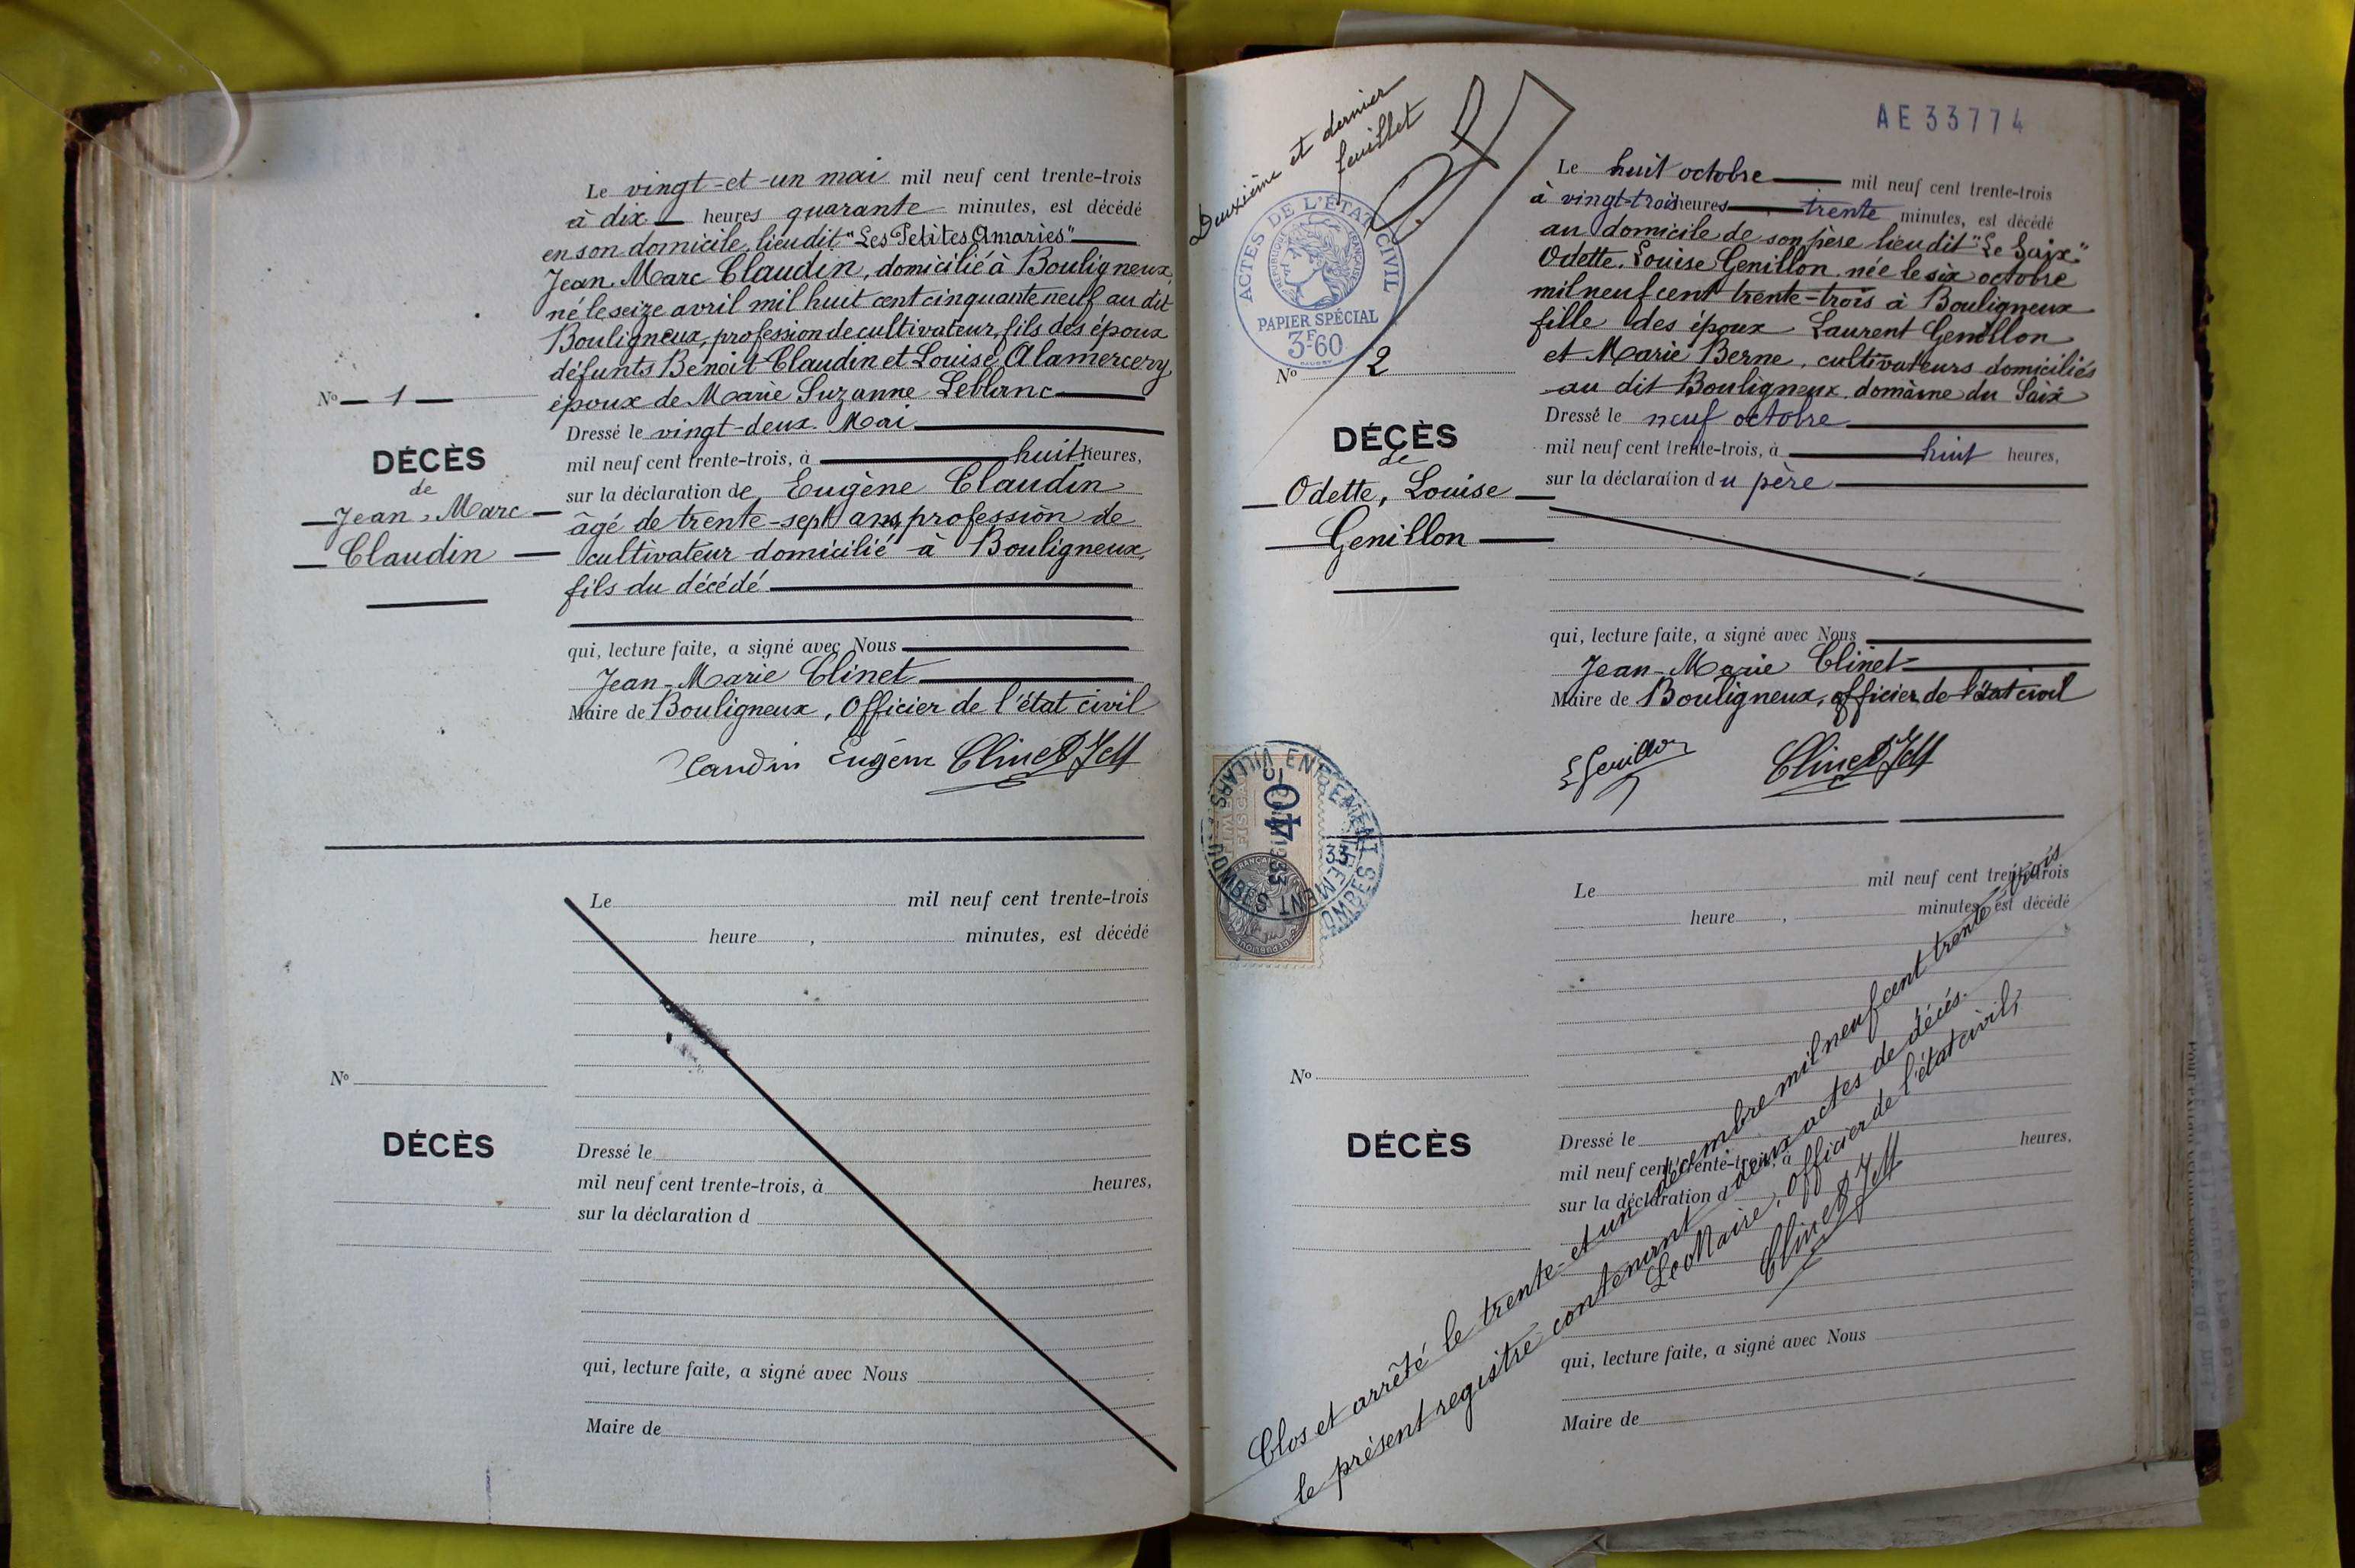 Le vingt-et-un mai mil neuf cent trente-trois
à dix heures quarante minutes, est décédé
en son domicile, lieu dit "Les Petites Amaries"
Jean, Marc Claudin, domicilié à Bouligneux
né le seize avril mil huit cent cinquante neuf au dit
Bouligneux, profession de cultivateur, fils des époux
défunts Benoit Claudin et Louise Alamercery
époux de Marie Suzanne Leblanc
Dressé le vingt-deux Mai
mil neuf cent trente-trois, à huit heures,
sur la déclaration de Eugène Claudin
âgé de trente-sept ans, profession de
cultivateur domicilié à Bouligneux,
fils du décédé
qui, lecture faite, a signé avec Nous
Jean-Marie Clinet
Maire de Bouligneux, Officier de l'état civil
Claudin Eugène Clinet
No 1
DÉCÈS
de
Jean, Marc
Claudin
Le mil neuf cent trente-trois
heure , minutes, est décédé
No
DÉCÈS
Dressé le
mil neuf cent trente-trois, à heures,
sur la déclaration d
qui, lecture faite, a signé avec Nous
Maire de
Deuxième et dernier
feuillet
ACTES DE L'ÉTAT CIVIL
RÉPUBLIQUE FRANÇAISE
PAPIER SPÉCIAL
3F60
AE 33774
Le huit octobre mil neuf cent trente-trois
à vingt-trois heures trente minutes, est décédé
au domicile de son père lieu dit "Le Saix"
Odette, Louise Genillon née le six octobre
mil neuf cent trente-trois à Bouligneux
fille des époux Laurent Genillon
et Marie Berne, cultivateurs domiciliés
au dit Bouligneux, domaine du Saix
Dressé le neuf octobre
mil neuf cent trente-trois, à huit heures,
sur la déclaration du père
qui, lecture faite, a signé avec Nous
Jean-Marie Clinet
Maire de Bouligneux, officier de l'état civil
Genillon Clinet
No 2
DÉCÈS
de
Odette, Louise
Genillon
ENREGISTREMENT
VILLARS
DOMBES
TIMBRE
FISCAL
40
Le mil neuf cent trente-trois
heure , minutes, est décédé
No
DÉCÈS
Dressé le
mil neuf cent trente-trois, à heures,
sur la déclaration d
qui, lecture faite, a signé avec Nous
Maire de
Clos et arrêté le trente-et-un décembre mil neuf cent trente-trois
le présent registre contenant deux actes de décès.
Le Maire, Officier de l'état civil,
Clinet